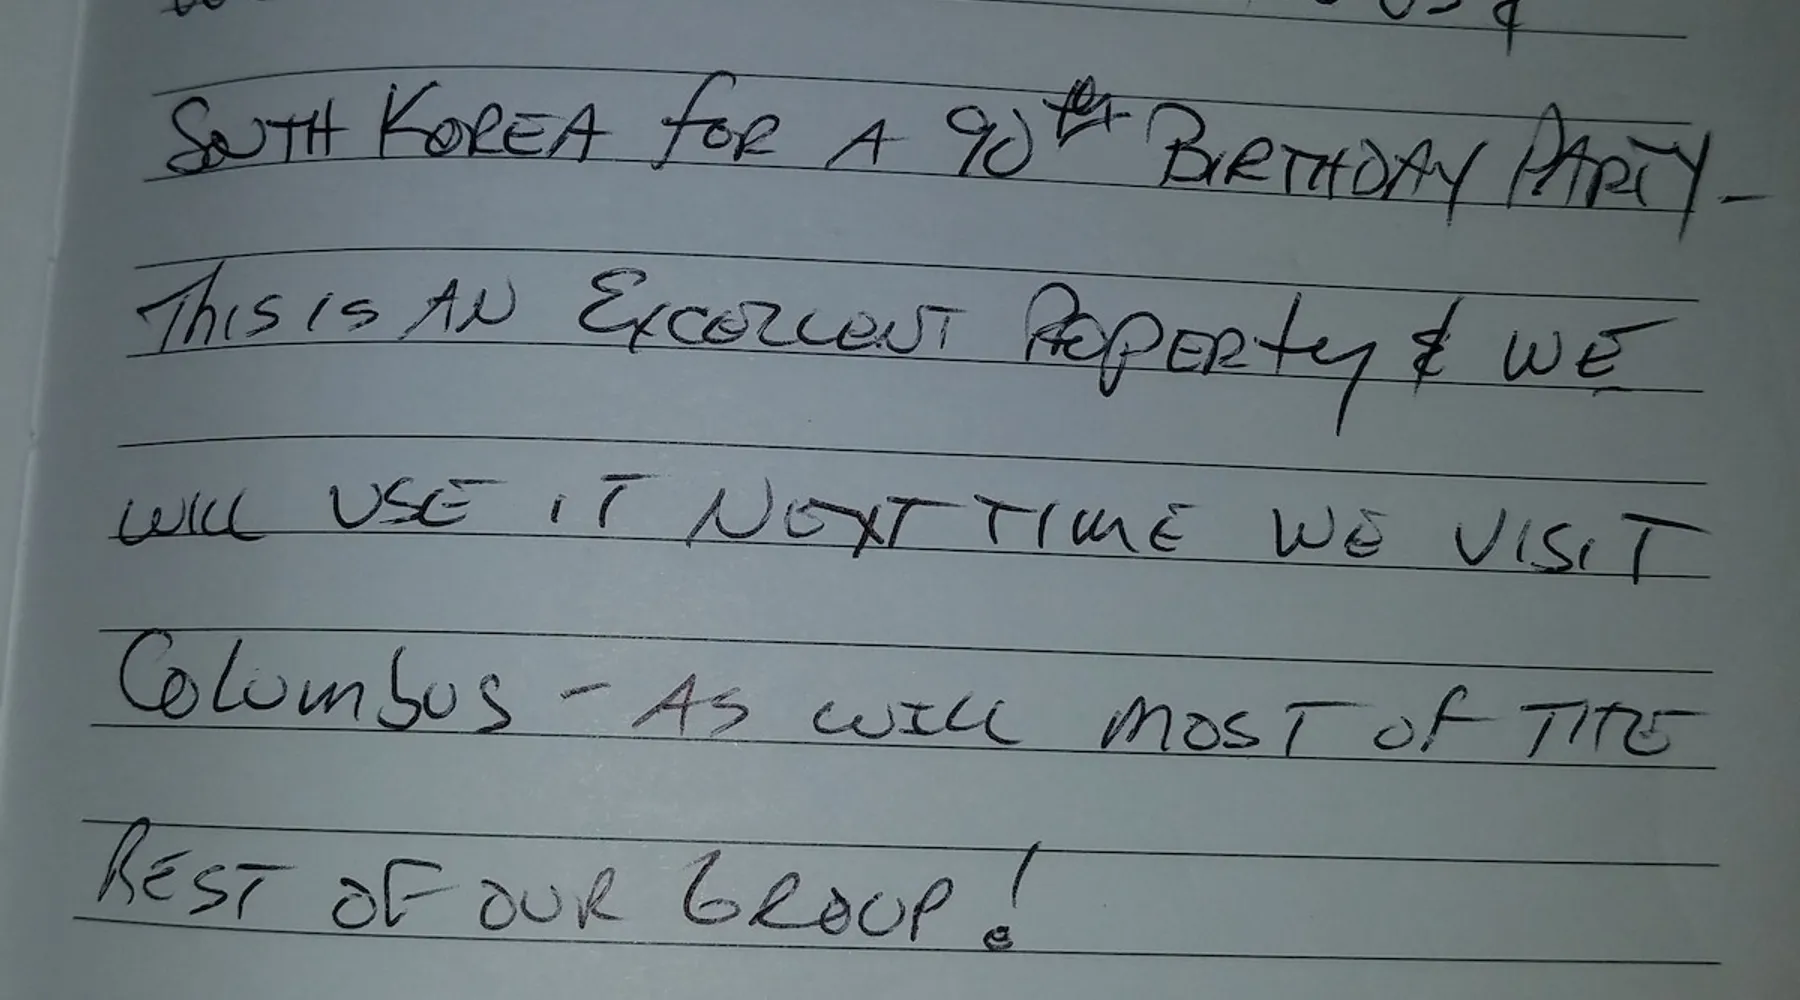 SOUTH KOREA for A 90th BIRTHDAY PARTY -
This is AN Excellent Property & WE
will USE iT NEXT TIME WE VISIT
Columbus - AS WILL MOST OF THE
REST OF OUR GROUP!